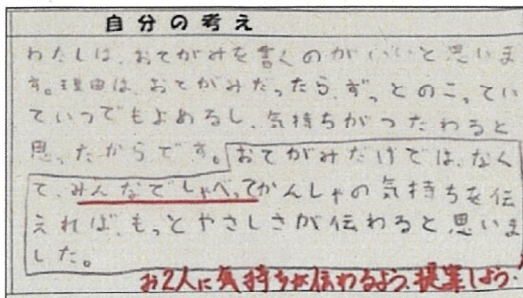 自分の考え
わたしは、おてがみを書くのがいいと思いま
す。理由は、おてがみだったら、ずっとのこってい
ていつでもよめるし、気持ちがつたわると
思ったからです。おてがみだけでは、なく
て、みんなでしゃべってかんしゃの気持ちを伝
えれば、もっとやさしさが伝わると思いま
した。
お2人に気持ちが伝わるよう、提案しよう。